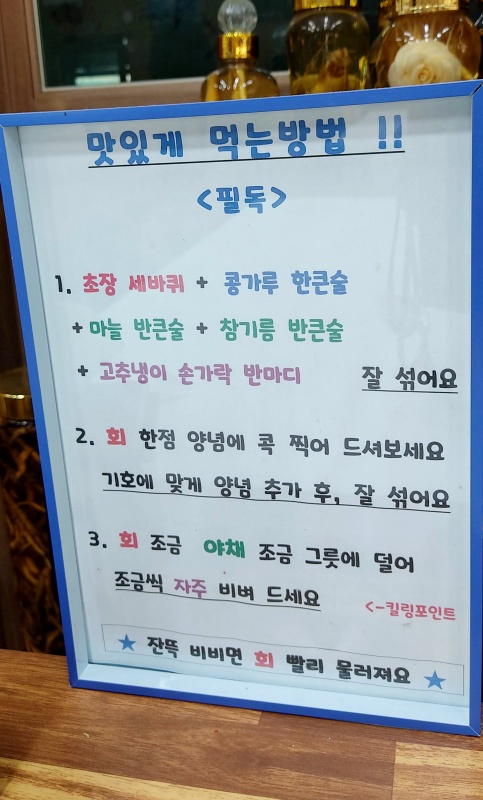 맛있게 먹는방법 !!
<필독>
1. 초장 세바퀴 + 콩가루 한큰술
+ 마늘 반큰술 + 참기름 반큰술
+ 고추냉이 손가락 반마디 잘 섞어요
2. 회 한점 양념에 콕 찍어 드셔보세요
기호에 맞게 양념 추가 후, 잘 섞어요
3. 회 조금 야채 조금 그릇에 덜어
조금씩 자주 비벼 드세요 <-킬링포인트
★ 잔뜩 비비면 회 빨리 물러져요 ★